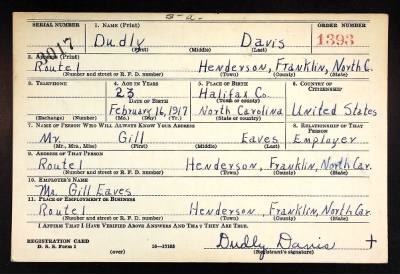 3-a-
SERIAL NUMBER 1. NAME (Print) ORDER NUMBER
3017 Dudly Davis 1393
(First) (Middle) (Last)
2. ADDRESS (Print)
Route 1 Henderson, Franklin, North C.
(Number and street or R. F. D. number) (Town) (County) (State)
3. TELEPHONE 4. AGE IN YEARS 5. PLACE OF BIRTH 6. COUNTRY OF CITIZENSHIP
23 Halifax Co.
DATE OF BIRTH (Town or county)
February 16, 1917 North Carolina United States
(Exchange) (Number) (Mo.) (Day) (Yr.) (State or country)
7. NAME OF PERSON WHO WILL ALWAYS KNOW YOUR ADDRESS 8. RELATIONSHIP OF THAT PERSON
Mr Gill Eaves Employer
(Mr., Mrs., Miss) (First) (Middle) (Last)
9. ADDRESS OF THAT PERSON
Route 1 Henderson, Franklin, North Car.
(Number and street or R. F. D. number) (Town) (County) (State)
10. EMPLOYER'S NAME
Mr. Gill Eaves
11. PLACE OF EMPLOYMENT OR BUSINESS
Route 1 Henderson, Franklin, North Car.
(Number and street or R. F. D. number) (Town) (County) (State)
I AFFIRM THAT I HAVE VERIFIED ABOVE ANSWERS AND THAT THEY ARE TRUE.
REGISTRATION CARD Dudly Davis
D. S. S. Form 1 (over) 16-17105 (Registrant's signature)